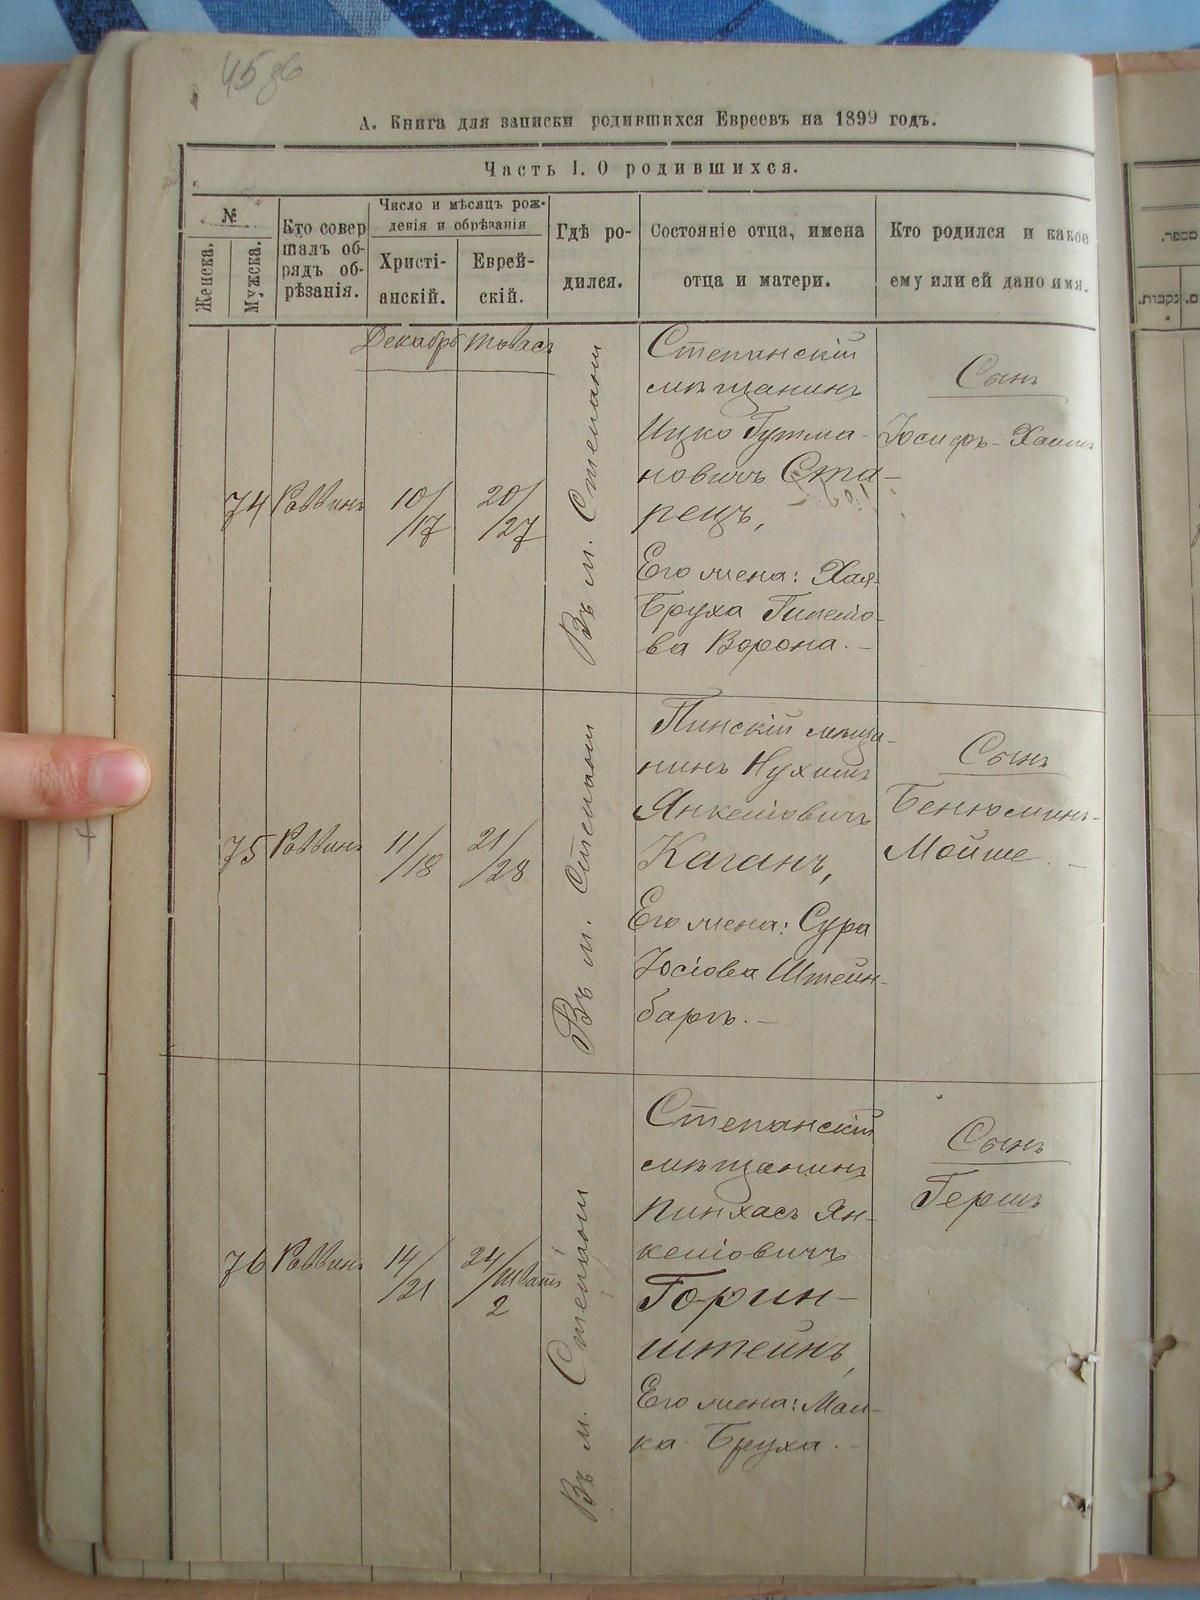 45 об
А. Книга для записки родившихся Евреевъ на 1899 годъ.
Часть I. О родившихся.
№
Женска.
Мужска.
Кто совер
шалъ об-
рядъ об-
рѣзанія.
Число и мѣсяцъ рож-
ленія и обрѣзанія
Христі-
анскій.
Еврей-
скій.
Гдѣ ро-
дился.
Состояніе отца, имена
отца и матери.
Кто родился и какое
ему или ей дано имя.
Декабрь
74
Раввинъ
10/17
20/27
Въ м. Степани
Степанскій
мѣщанинъ
Ицко Гутма-
новичъ Ста-
рецъ,
Его жена: Хая-
Бруха
ва Ворона.-
Сынъ
Іосифъ-Хаимъ
75
Раввинъ
11/18
21/28
Въ м. Степани
Пинскій мѣща-
нинъ Нухимъ
Янкелiовичъ
Каганъ,
Его жена: Сура
Іосіова Штейн-
баргъ.-
Сынъ
Бенюминъ-
Мойше.-
76
Раввинъ
14/21
24/шватъ
2
Въ м. Степани
Степанскій
мѣщанинъ
Пинхасъ Ян-
келiовичъ
Горин-
штейнъ,
Его жена: Мал-
ка Бруха.-
Сынъ
Гершъ
מספר.
נקבות.